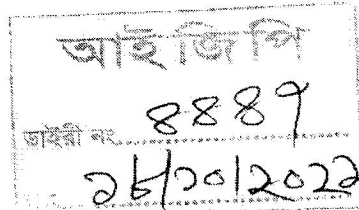 আই জি পি
ডাইরী নং ৪৪৪৭
১৮/১০/২০২১